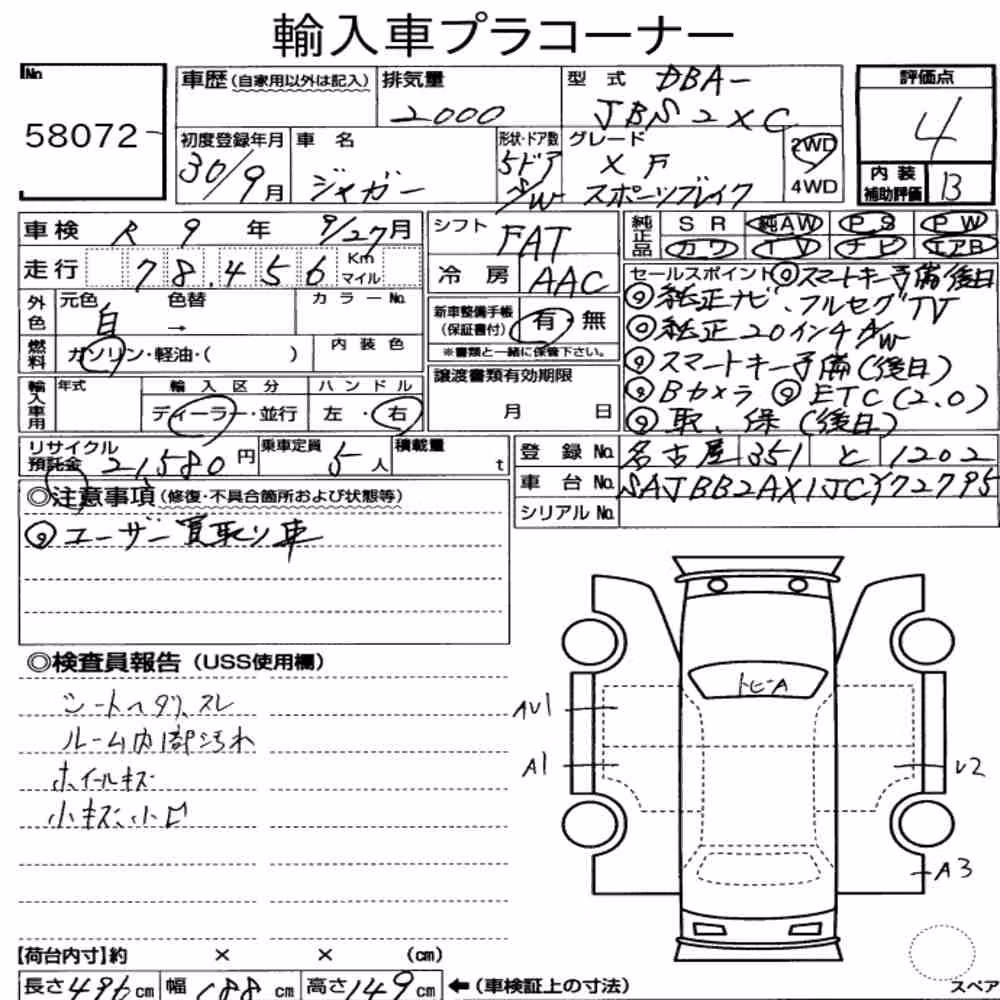 輸入車プラコーナー
No. 58072
車歴(自家用以外は記入) 排気量 2000 型式 DBA-JBS2XC
評価点 4
内装補助評価 B
初度登録年月 30/9月 車名 ジャガー 形状・ドア数 5ドア S/W グレード XF スポーツブレイク 2WD 4WD
車検 R 9年 9/27月
走行 78,456 Km マイル
シフト FAT
冷房 AAC
純正品 SR 純AW PS PW
カワ TV ナビ エアB
外色 元色 白 → 色替 カラーNo.
燃料 ガソリン・軽油・( ) 内装色
新車整備手帳(保証書付) 有・無
※書類と一緒に保管下さい。
セールスポイント ◎スマートキー予備後日
◎純正ナビ、フルセグTV
◎純正20インチA/W
◎スマートキー予備(後日)
◎Bカメラ ◎ETC(2.0)
◎取、保(後日)
輸入車用 年式 輸入区分 ディーラー・並行 ハンドル 左・右
譲渡書類有効期限 月 日
リサイクル預託金 21,580円 乗車定員 5人 積載量 t
登録No. 名古屋 351 と 1202
車台No. SAJBB2AX1JCY72795
シリアルNo.
◎注意事項(修復・不具合箇所および状態等)
◎ユーザー買取り車
◎検査員報告(USS使用欄)
シートヘタリ、スレ
ルーム内部汚れ
ホイールキズ
小キズ、小凹
トビーA
AU1
A1
U2
A3
【荷台内寸】約 × × (cm)
長さ496cm 幅188cm 高さ149cm ←(車検証上の寸法)
スペア